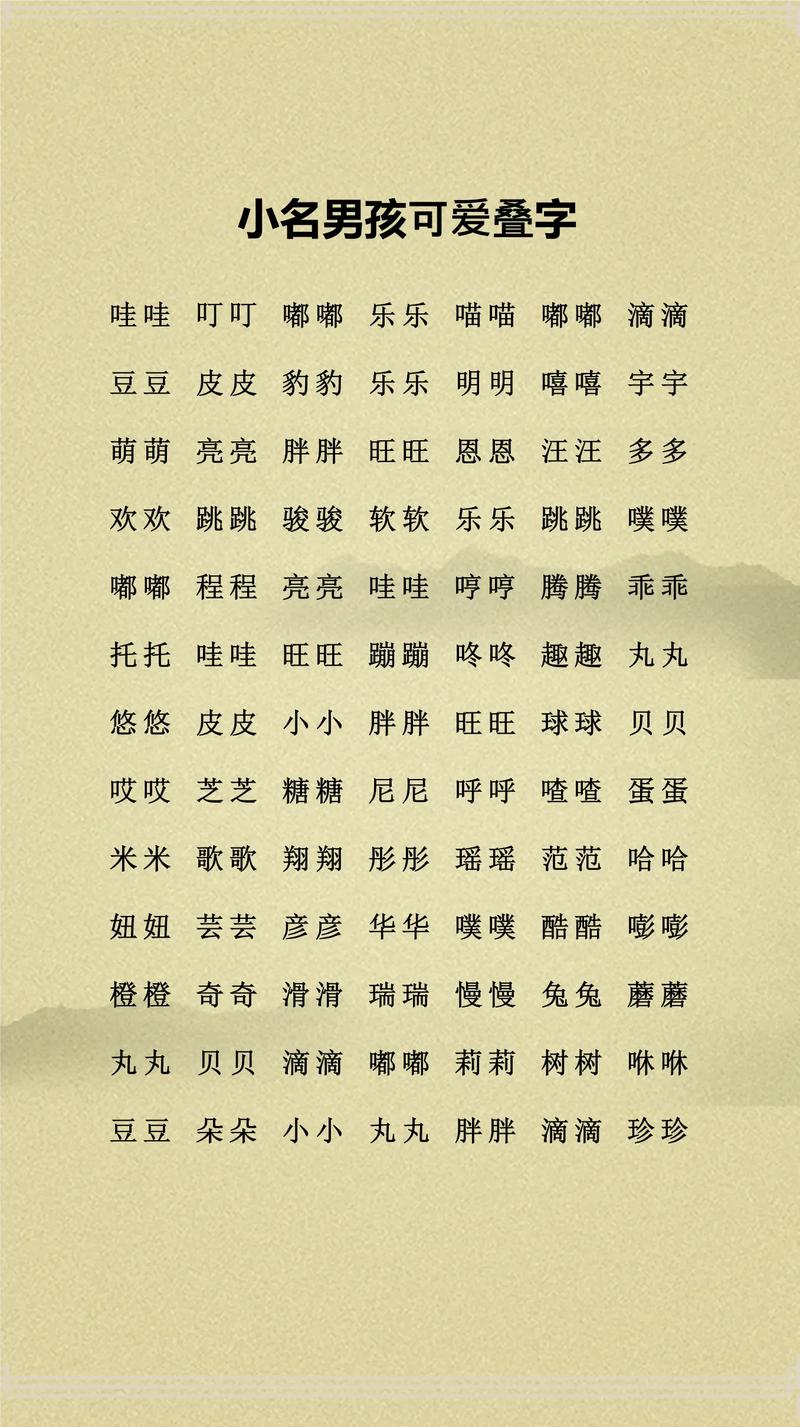 小名男孩可爱叠字
哇哇 叮叮 嘟嘟 乐乐 喵喵 嘟嘟 滴滴
豆豆 皮皮 豹豹 乐乐 明明 嘻嘻 宇宇
萌萌 亮亮 胖胖 旺旺 恩恩 汪汪 多多
欢欢 跳跳 骏骏 软软 乐乐 跳跳 噗噗
嘟嘟 程程 亮亮 哇哇 哼哼 腾腾 乖乖
托托 哇哇 旺旺 蹦蹦 咚咚 趣趣 丸丸
悠悠 皮皮 小小 胖胖 旺旺 球球 贝贝
哎哎 芝芝 糖糖 尼尼 呼呼 喳喳 蛋蛋
米米 歌歌 翔翔 彤彤 瑶瑶 范范 哈哈
妞妞 芸芸 彦彦 华华 噗噗 酷酷 嘭嘭
橙橙 奇奇 滑滑 瑞瑞 慢慢 兔兔 蘑蘑
丸丸 贝贝 滴滴 嘟嘟 莉莉 树树 咻咻
豆豆 朵朵 小小 丸丸 胖胖 滴滴 珍珍